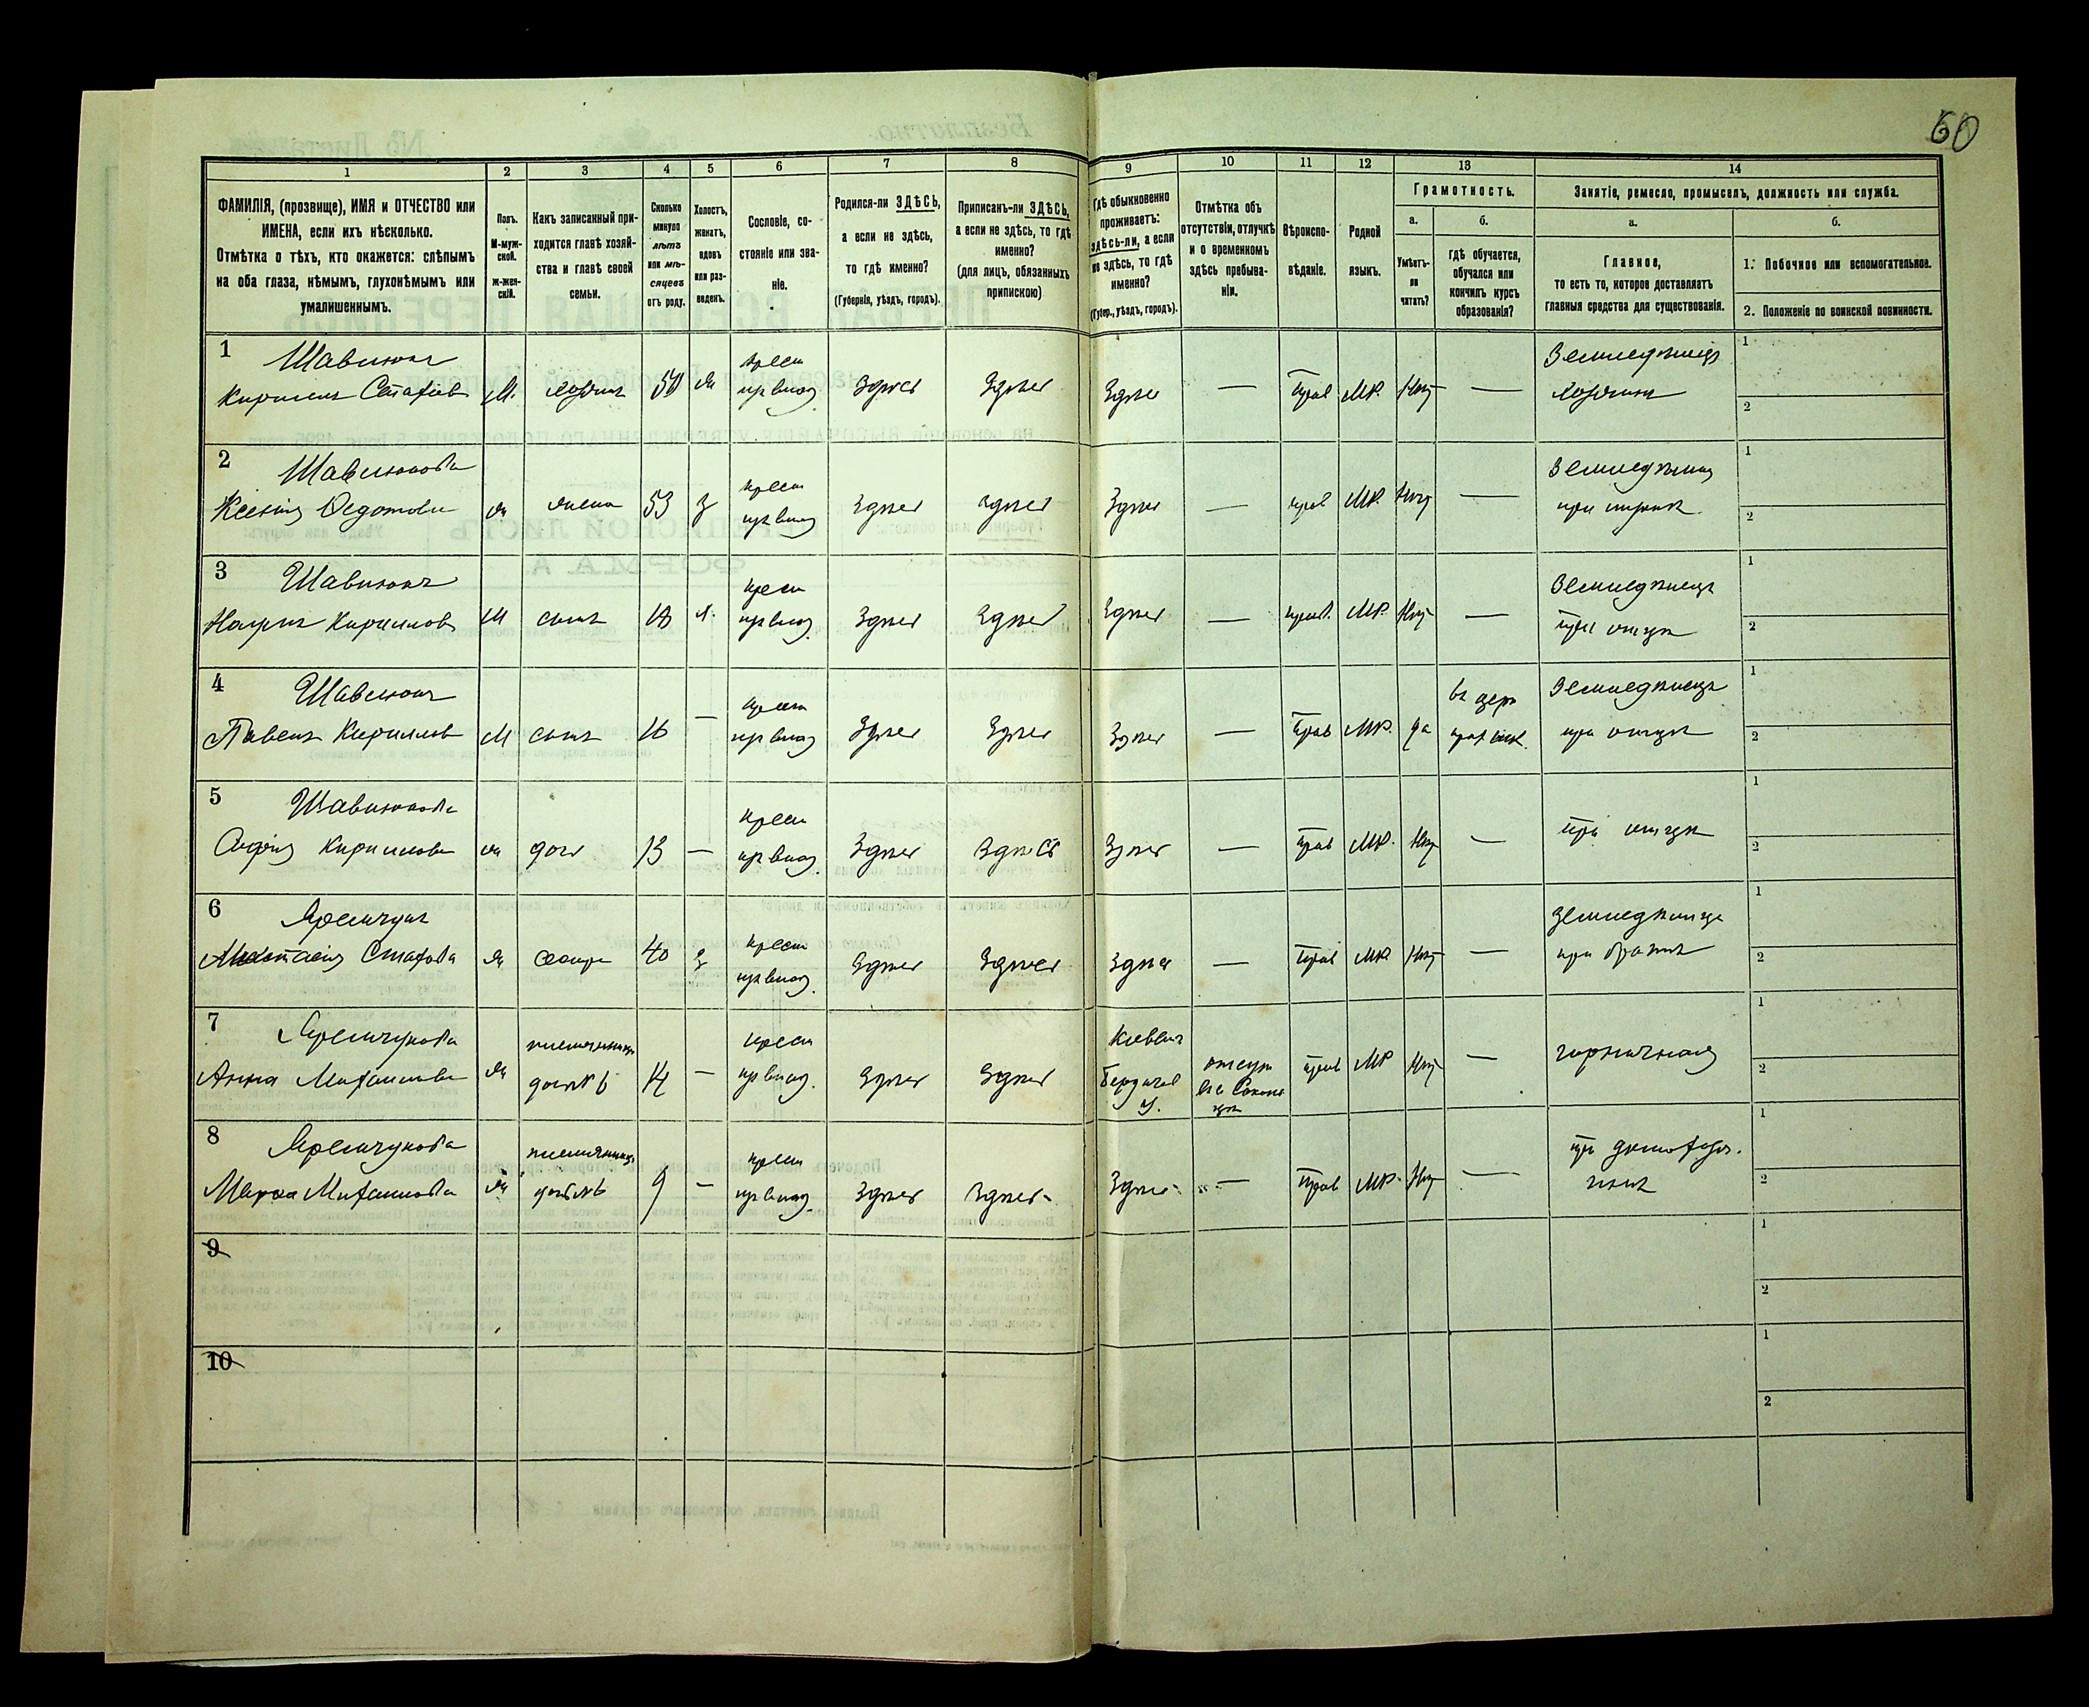 60
1
2
3
4
5
6
7
8
9
10
11
12
13
14
ФАМИЛІЯ, (прозвище), ИМЯ и ОТЧЕСТВО или
ИМЕНА, если ихъ нѣсколько.
Отмѣтка о тѣхъ, кто окажется: слѣпымъ
на оба глаза, нѣмымъ, глухонѣмымъ или
умалишеннымъ.
Полъ.
М-муж-
ской.
ж-жен-
скій.
Какъ записанный при-
ходится главѣ хозяй-
ства и главѣ своей
семьи.
Сколько
минуло
лѣтъ
или мѣ-
сяцевъ
отъ роду.
Холостъ,
женатъ,
вдовъ
или раз-
веденъ.
Сословіе, со-
стояніе или зва-
ніе.
Родился-ли ЗДѢСЬ,
а если не здѣсь,
то гдѣ именно?
(Губернія, уѣздъ, городъ).
Приписанъ-ли ЗДѢСЬ,
а если не здѣсь, то гдѣ
именно?
(для лицъ, обязанныхъ
припискою)
Гдѣ обыкновенно
проживаетъ:
здѣсь-ли, а если
не здѣсь, то гдѣ
именно?
(Губер., уѣздъ, городъ).
Отмѣтка объ
отсутствіи, отлучкѣ
и о временномъ
здѣсь пребыва-
ніи.
Вѣроиспо-
вѣданіе.
Родной
языкъ.
Грамотность.
а.
б.
Умѣетъ-
ли
читать?
Гдѣ обучается,
обучался или
кончилъ курсъ
образованія?
Занятіе, ремесло, промыселъ, должность или служба.
а.
б.
Главное,
то есть то, которое доставляетъ
главныя средства для существованія.
1. Побочное или вспомогательное.
2. Положеніе по воинской повинности.
1
Шавлюкъ
Кирилъ Стафіев
М.
хозяинъ
50
ж
крест
из влад
Здѣсь
Здѣсь
Здѣсь
—
Прав
МР.
Нѣт
—
Земледѣлец
хозяинъ
1
2
2
Шавлюкова
Ксенія Федотова
ж
жена
53
з
крест
из влад
Здѣсь
Здѣсь
Здѣсь
—
прав
МР.
Нѣт
—
Земледѣлец
при мужѣ
1
2
3
Шавлюкъ
Кириллов
М
сынъ
18
х.
крест
из влад.
Здѣсь
Здѣсь
Здѣсь
—
прав.
МР.
Нѣт
—
Земледѣлец
при отцѣ
1
2
4
Шавлюкъ
Павелъ Кириллов
М
сынъ
16
—
крест
из влад
Здѣсь
Здѣсь
Здѣсь
—
Прав
МР.
да
въ церк
прих шк.
Земледѣлец
при отцѣ
1
2
5
Шавлюкова
Софія Кириллова
ж
доч
13
—
крест
из влад.
Здѣсь
Здѣсь
Здѣсь
—
Прав
МР.
Нѣт
—
при отцѣ
1
2
6
Яремчукъ
Анастасія Стафова
ж
сестра
40
з
крест
из влад.
Здѣсь
Здѣсь
Здѣсь
—
Прав
МР.
Нѣт
—
Земледѣлица
при братѣ
1
2
7
Яремчукова
Анна Михаилова
ж
племянница
доч № 6
14
—
крест
из влад.
Здѣсь
Здѣсь
Кіевск
Бердичев
у.
отсут
прав
МР
Нѣт
—
горничная
1
2
8
Яремчукова
Михаилова
ж
племянница
доч № 6
9
—
крест
из влад.
Здѣсь
Здѣсь
Здѣсь
—
Прав
МР.
Нѣт
—
1
2
9
1
2
10
1
2